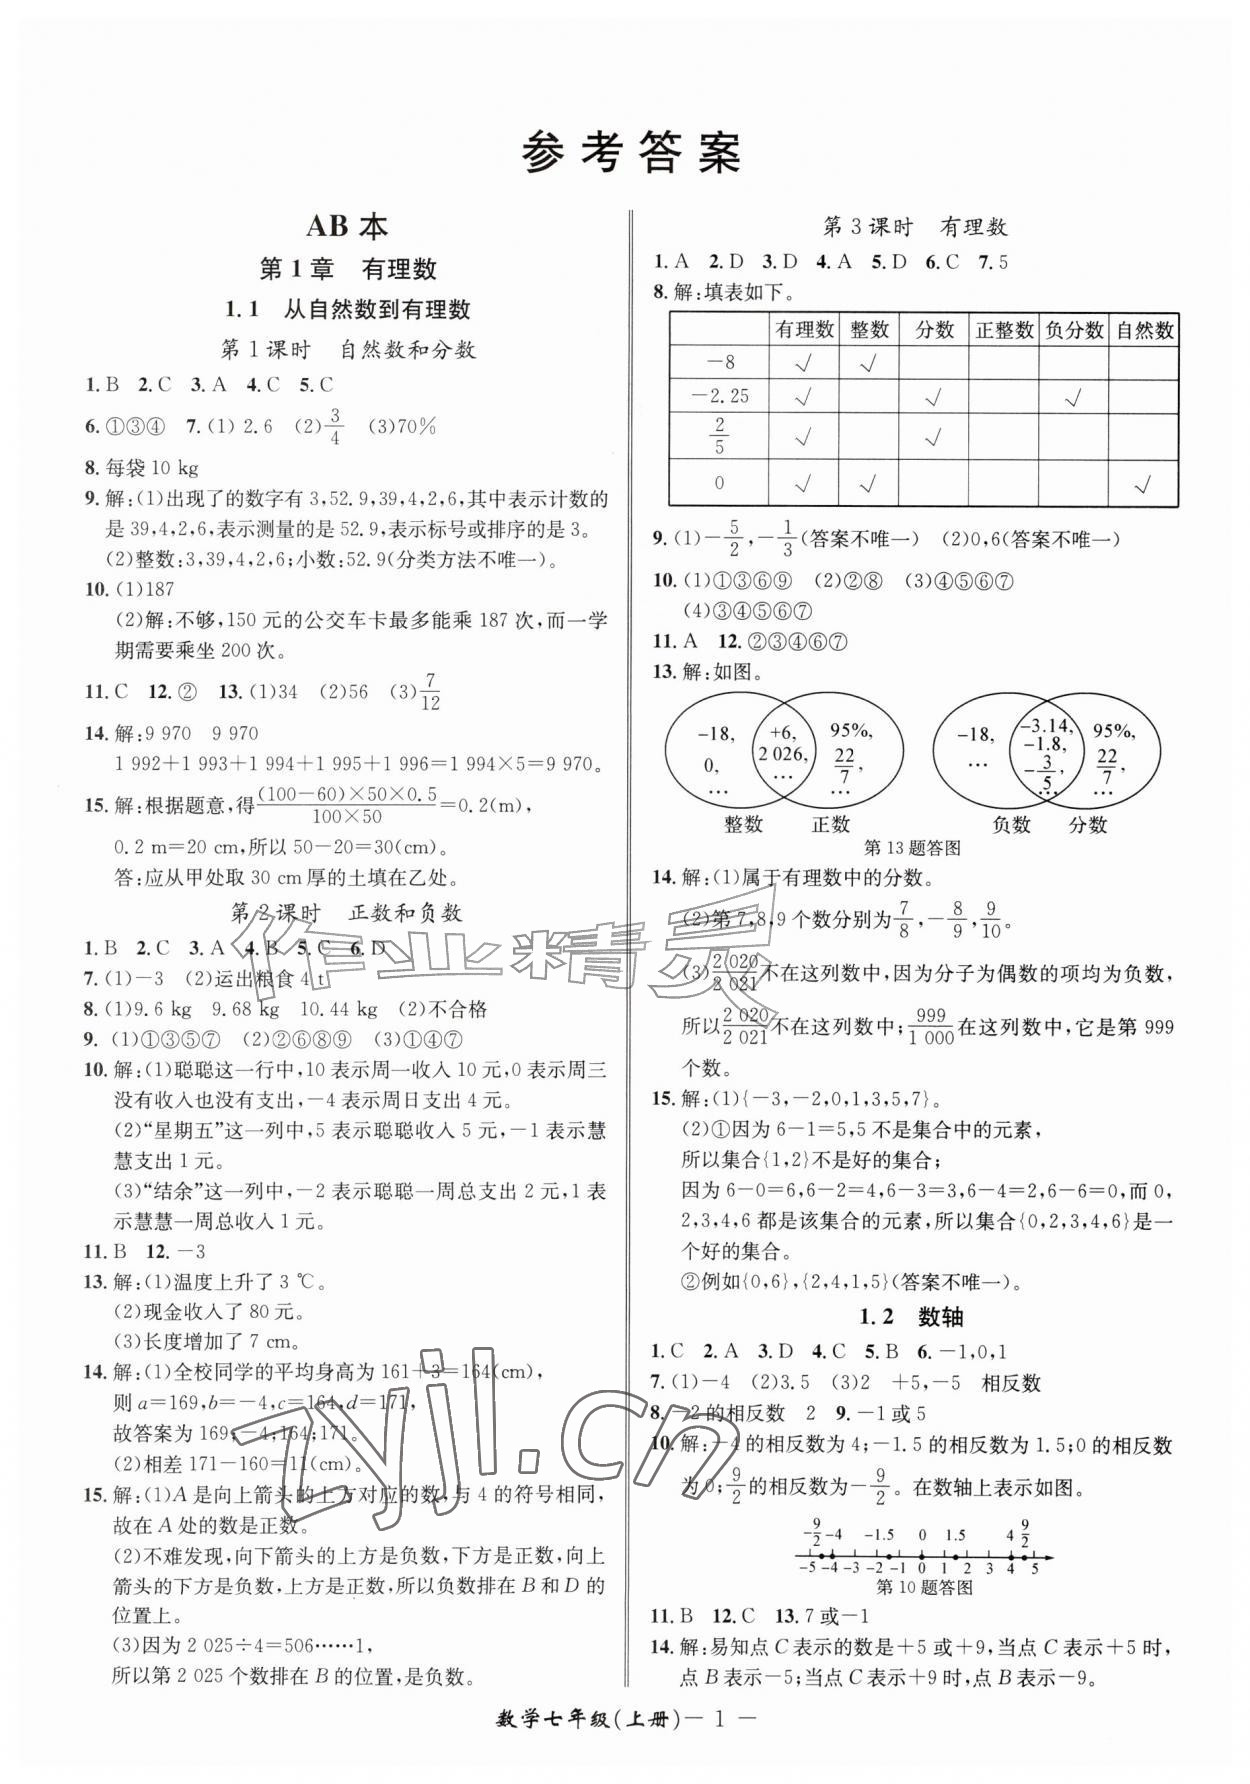 参考答案
AB本
第1章 有理数
1.1 从自然数到有理数
第1课时 自然数和分数
1.B 2.C 3.A 4.C 5.C
6.①③④ 7.(1)2.6 (2)3/4 (3)70%
8.每袋10 kg
9.解:(1)出现了的数字有3,52.9,39,4,2,6,其中表示计数的
是39,4,2,6,表示测量的是52.9,表示标号或排序的是3。
(2)整数:3,39,4,2,6;小数:52.9(分类方法不唯一)。
10.(1)187
(2)解:不够,150元的公交车卡最多能乘187次,而一学
期需要乘坐200次。
11.C 12.② 13.(1)34 (2)56 (3)7/12
14.解:9 970 9 970
1 992+1 993+1 994+1 995+1 996=1 994×5=9 970。
15.解:根据题意,得(100-60)×50×0.5/100×50=0.2(m),
0.2 m=20 cm,所以50-20=30(cm)。
答:应从甲处取30 cm厚的土填在乙处。
第2课时 正数和负数
1.B 2.C 3.A 4.B 5.C 6.D
7.(1)-3 (2)运出粮食4 t
8.(1)9.6 kg 9.68 kg 10.44 kg (2)不合格
9.(1)①③⑤⑦ (2)②⑥⑧⑨ (3)①④⑦
10.解:(1)聪聪这一行中,10表示周一收入10元,0表示周三
没有收入也没有支出,-4表示周日支出4元。
(2)“星期五”这一列中,5表示聪聪收入5元,-1表示慧
慧支出1元。
(3)“结余”这一列中,-2表示聪聪一周总支出2元,1表
示慧慧一周总收入1元。
11.B 12.-3
13.解:(1)温度上升了3 ℃。
(2)现金收入了80元。
(3)长度增加了7 cm。
14.解:(1)全校同学的平均身高为161+3=164(cm),
则a=169,b=-4,c=164,d=171,
故答案为169;-4;164;171。
(2)相差171-160=11(cm)。
15.解:(1)A是向上箭头的上方对应的数,与4的符号相同,
故在A处的数是正数。
(2)不难发现,向下箭头的上方是负数,下方是正数,向上
箭头的下方是负数,上方是正数,所以负数排在B和D的
位置上。
(3)因为2 025÷4=506……1,
所以第2 025个数排在B的位置,是负数。
第3课时 有理数
1.A 2.D 3.D 4.A 5.D 6.C 7.5
8.解:填表如下。
有理数 整数 分数 正整数 负分数 自然数
-8 √ √
-2.25 √ √ √
2/5 √ √
0 √ √ √
9.(1)-5/2,-1/3(答案不唯一) (2)0,6(答案不唯一)
10.(1)①③⑥⑨ (2)②⑧ (3)④⑤⑥⑦
(4)③④⑤⑥⑦
11.A 12.②③④⑥⑦
13.解:如图。
-18, 0, … +6, 2 026, … 95%, 22/7, …
整数 正数
-18, … -3.14, -1.8, -3/5, … 95%, 22/7, …
负数 分数
第13题答图
14.解:(1)属于有理数中的分数。
(2)第7,8,9个数分别为7/8,-8/9,9/10。
(3)2 020/2 021不在这列数中,因为分子为偶数的项均为负数,
所以2 020/2 021不在这列数中;999/1 000在这列数中,它是第999
个数。
15.解:(1){-3,-2,0,1,3,5,7}。
(2)①因为6-1=5,5不是集合中的元素,
所以集合{1,2}不是好的集合;
因为6-0=6,6-2=4,6-3=3,6-4=2,6-6=0,而0,
2,3,4,6都是该集合的元素,所以集合{0,2,3,4,6}是一
个好的集合。
②例如{0,6},{2,4,1,5}(答案不唯一)。
1.2 数轴
1.C 2.A 3.D 4.C 5.B 6.-1,0,1
7.(1)-4 (2)3.5 (3)2 +5,-5 相反数
8.-2的相反数 2 9.-1或5
10.解:-4的相反数为4;-1.5的相反数为1.5;0的相反数
为0;9/2的相反数为-9/2。在数轴上表示如图。
-9/2 -4 -1.5 0 1.5 4 9/2
-5 -4 -3 -2 -1 0 1 2 3 4 5
第10题答图
11.B 12.C 13.7或-1
14.解:易知点C表示的数是+5或+9,当点C表示+5时,
点B表示-5;当点C表示+9时,点B表示-9。
数学七年级(上册)— 1 —
作业精灵
zyjl.cn